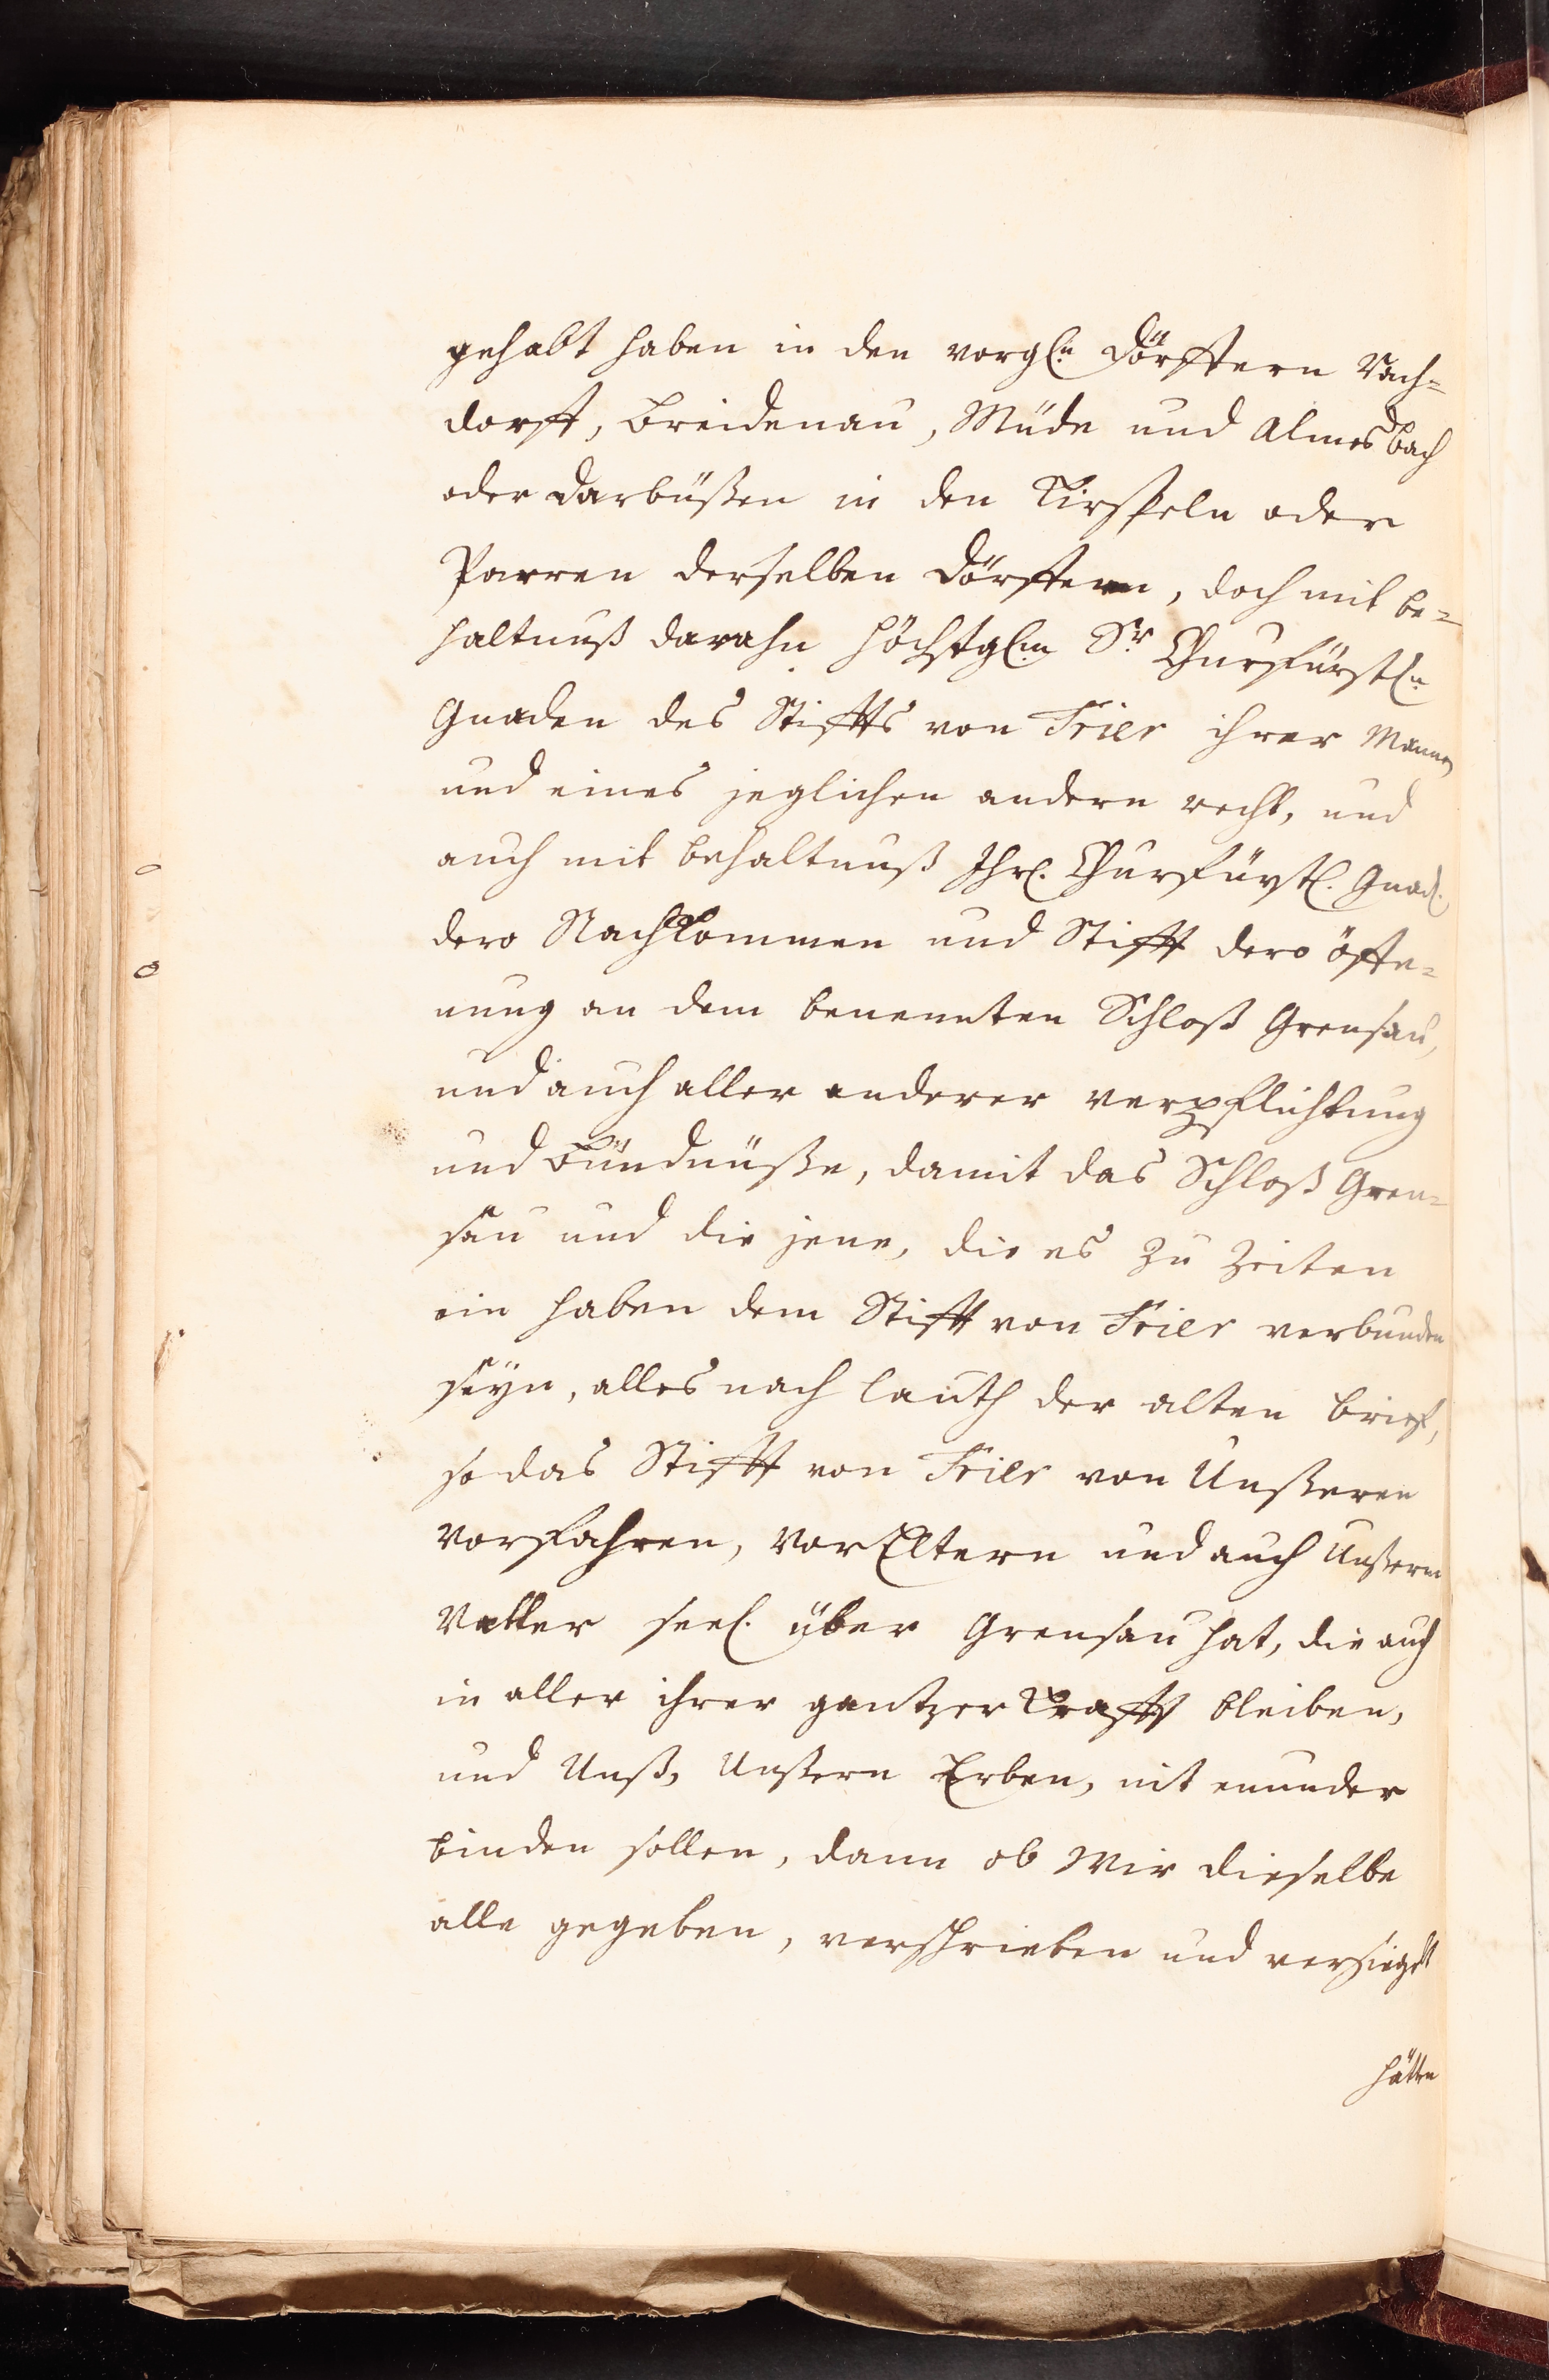 gehabt haben in den vorgl:n Dörfftern Nach=
dorff, Breidenau, Müde und Almesbach
oder darbüßen in den Kirspeln oder
Parren derselben Dörfftern, doch mit be=
haltnuß darahn höchstgl:m Sr Churfürstl:n
Gnaden des Stiffts von Trier ihrer Mannen
und eines jeglichen andern recht, und
auch mit behaltnuß Ihrl. Churfürstl. Gnad.
dero Nachkommen und Stifft dero öffe=
nung an dem benennten Schloß Grensau,
und auch aller anderer verpflichtung
und Bündnüße, damit das Schloß Gren=
sau und die jene, die es zu Zeiten
ein haben dem Stifft von Trier verbunden
seyn, alles nach lauth der alten brief,
so das Stifft von Trier von Unßeren
Vorfahren, VorEltern und auch Unßerm
Vatter seel. über Grensau hat, die auch
in aller ihrer gantzer Krafft bleiben,
und Unß, Unßern Erben, nit
binden sollen, dann ob Wir dieselbe
alle gegeben, verschrieben und versiegelt
hätten